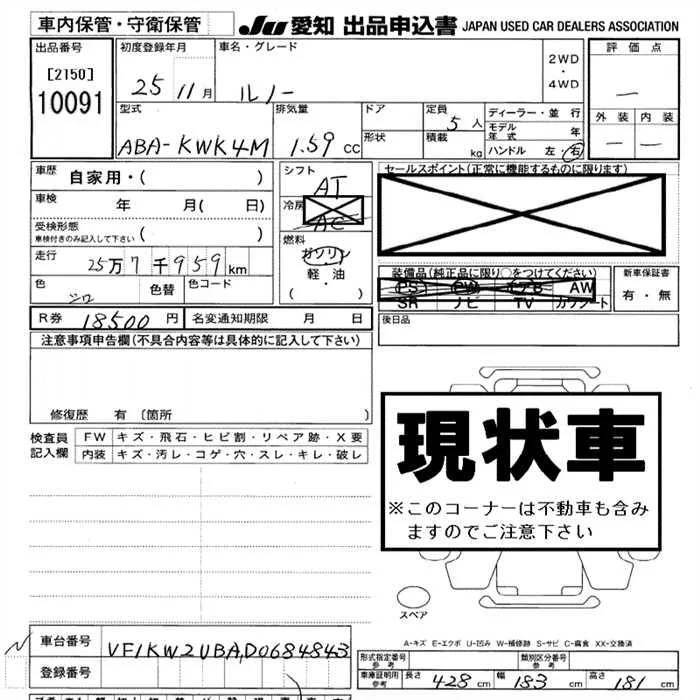 車内保管・守衛保管
JU 愛知 出品申込書 JAPAN USED CAR DEALERS ASSOCIATION
出品番号
[2150]
10091
初度登録年月
25 11月
車名・グレード
ルノー
2WD
・
4WD
評価点
—
外装 内装
— —
型式
ABA-KWK4M
排気量
1.59 cc
ドア
形状
定員
5人
積載
kg
ディーラー・並行
モデル年式 年
ハンドル 左・右
車歴
自家用・( )
車検 年 月( 日)
受検形態
車検付きのみ記入して下さい ( )
走行
25万7千959km
色
シロ
色替
色コード
シフト
AT
冷房
AC
燃料
ガソリン
軽・油
( ・ )
セールスポイント(正常に機能するものに限ります)
装備品(純正品に限り○をつけてください)
PS PW エアB AW
SR ナビ TV カワシート
新車保証書
有・無
R券 18500円
名変通知期限 月 日
後日品
注意事項申告欄(不具合内容等は具体的に記入して下さい)
修復歴 有(箇所 )
検査員
記入欄
FW キズ・飛石・ヒビ割・リペア跡・X要
内装 キズ・汚レ・コゲ・穴・スレ・キレ・破レ
現状車
※このコーナーは不動車も含み
ますのでご注意下さい
スペア
A-キズ E-エクボ U-凹み W-補修跡 S-サビ C-腐食 XX-交換済
N
車台番号
VF1KW2UBAD0684843
登録番号
形式指定番号
参考
類別区分番号
参考
車庫証明用
参考
長さ 428 cm
幅 183 cm
高さ 181 cm